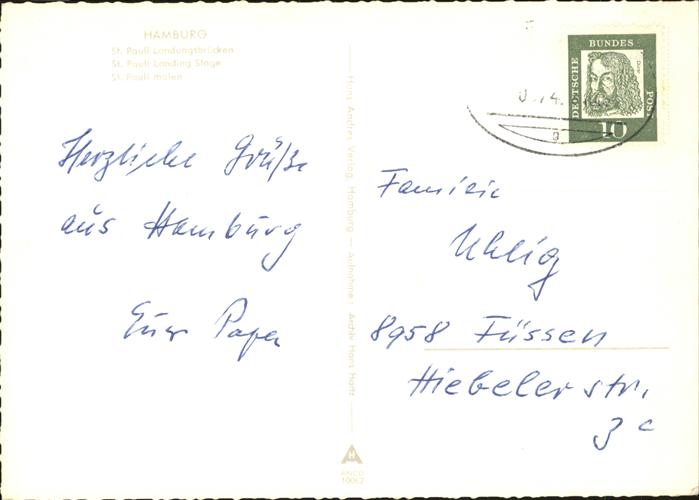 HAMBURG
St. Pauli Landungsbrücken
St. Pauli Landing Stage
St. Pauli malen
Herzliche Grüße
aus Hamburg
Euer Papa
Hans Andres Verlag, Hamburg — Aufnahme: Archiv Hans Hartz
ANCO
10062
DEUTSCHE
BUNDES
POST
10
Familie
Uhlig
8958 Füssen
Hiebelerstr.
3c